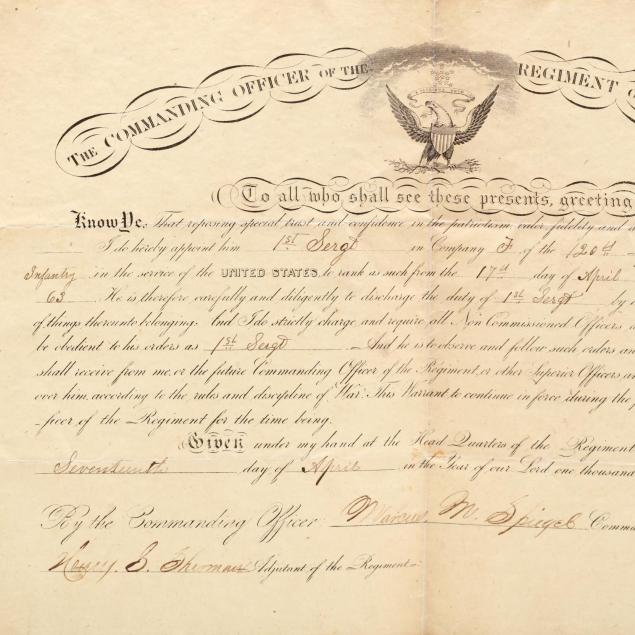 THE COMMANDING OFFICER OF THE REGIMENT O
To all who shall see these presents, greeting
Know Ye, That reposing special trust and confidence in the patriotism, valor, fidelity and a
I do hereby appoint him 1st Sergt in Company F of the 120th
Infantry in the service of the UNITED STATES, to rank as such from the 17th day of April
63 He is therefore carefully and diligently to discharge the duty of 1st Sergt by
of things thereunto belonging. And I do strictly charge, and require, all Non Commissioned Officers
be obedient to his orders as 1st Sergt And he is to observe and follow such orders an
shall receive from me, or the future Commanding Officer of the Regiment, or other Superior Officers an
over him, according to the rules and discipline of War. This Warrant to continue in force during the
-ficer of the Regiment for the time being.
Given under my hand at the Head Quarters of the Regiment
Seventeenth day of April in the Year of our Lord one thousand
By the Commanding Officer Marcus M. Spiegel Comm
Henry S. Adjutant of the Regiment.